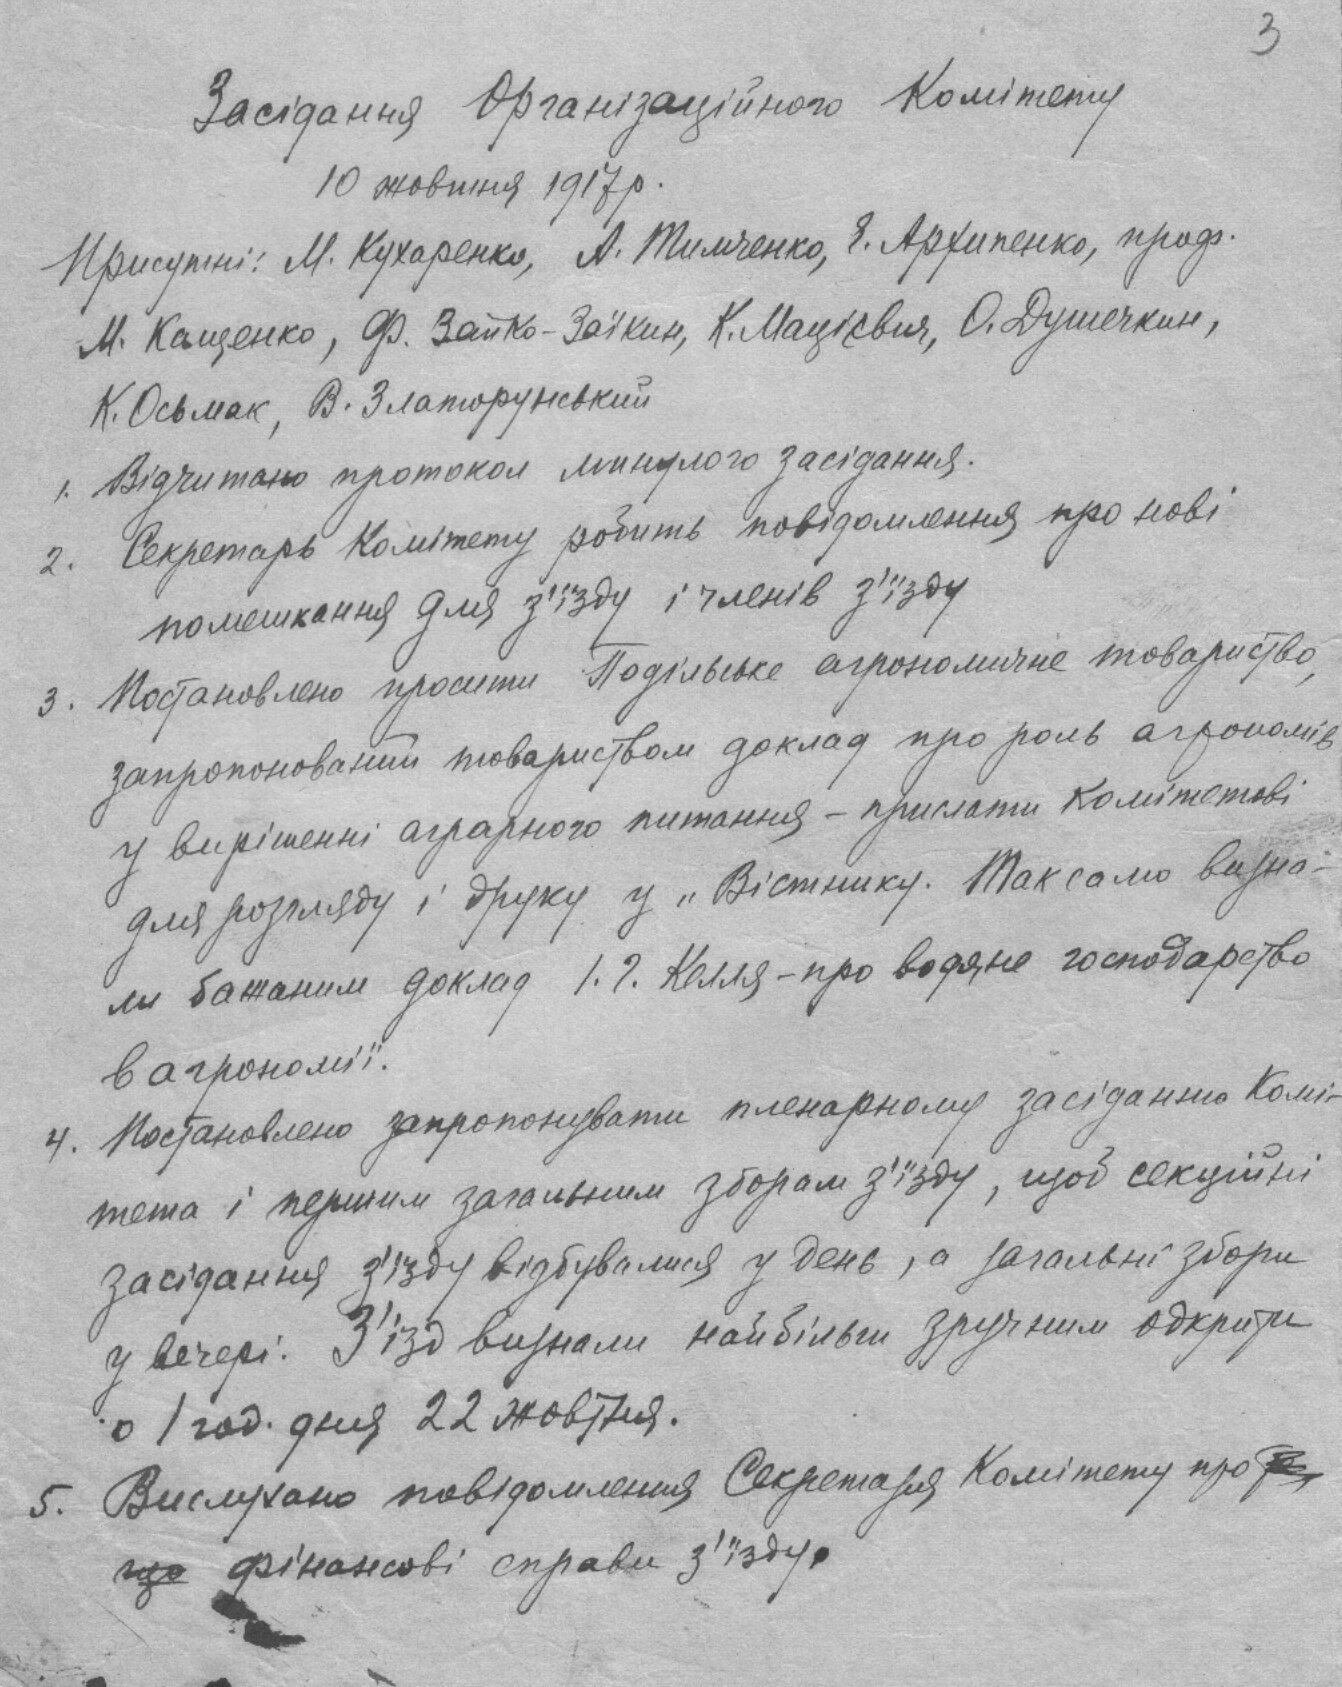 3
Засідання Організаційного Комітету
10 жовтня 1917 р.
Присутні: М. Кухаренко, А. Тимченко, Є. Архипенко, проф.
М. Кащенко, Ф. Зайко-Заїкин, К. Мацієвич, О. Душечкин,
К. Осьмак, В. Златорунський
1. Відчитано протокол минулого засідання.
2. Секретарь Комітету робить повідомлення про нові
помешкання для з'їзду і членів з'їзду
3. Постановлено просити Подільське агрономичне товариство,
запропонований товариством доклад про роль агрономів
у вирішенні аграрного питання – прислати Комітетові
для розгляду і друку у „Вістнику. Так само визна-
ли бажаним доклад Келля – про водяне господарство
в агрономії.
4. Постановлено запропонувати пленарному засіданню Комі-
тета і першим загальним зборам з'їзду, щоб секційні
засідання з'їзду відбувалися у день, а загальні збори
у вечері. З'їзд визнали найбільш зручним одкрити
о 1 год. дня 22 жовтня.
5. Вислухано повідомлення Секретаря Комітету про
що фінансові справи з'їзду.